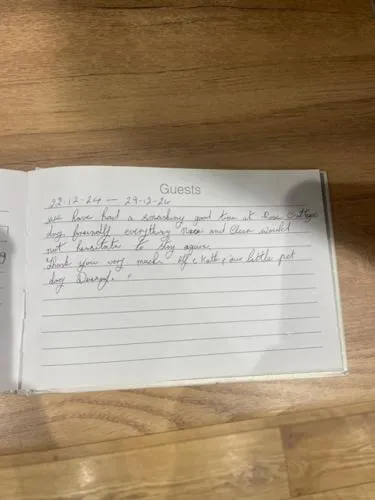 Guests
22-12-24 — 29-12-24
we have had a smashing good time at Rose Cottage
dog friendly everything nice and clean would
not hesitate to stay again.
Thank you very much. Kath, our little pet
dog
g